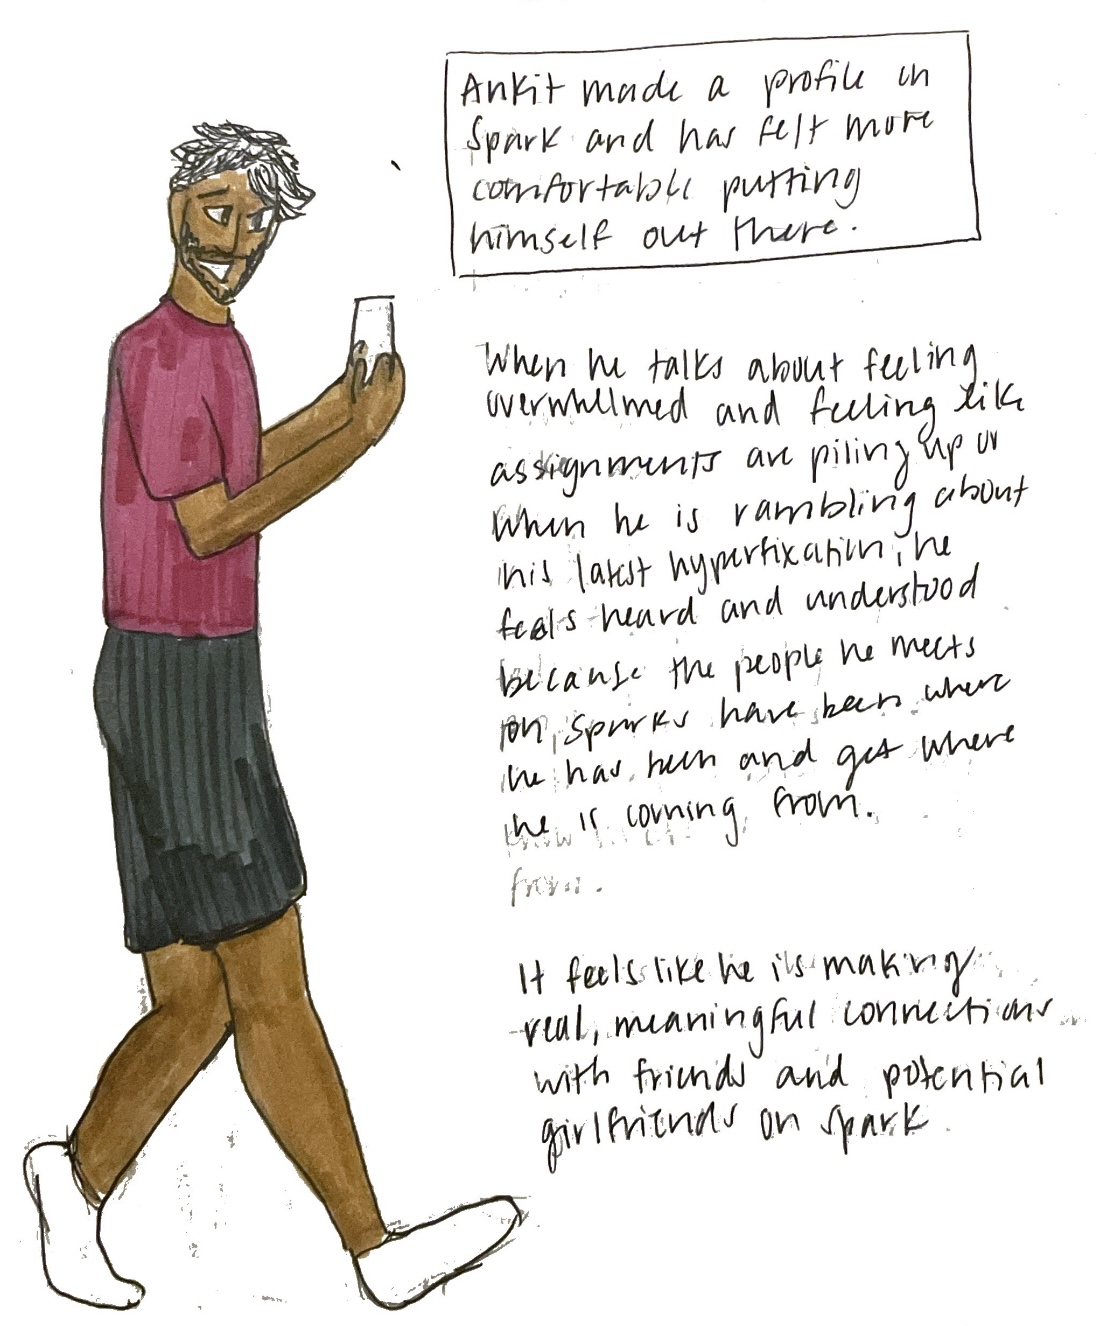 Ankit made a profile on
Spark and has felt more
comfortable putting
himself out there.
When he talks about feeling
overwhelmed and feeling like
assignments are piling up or
when he is rambling about
his latest hyperfixation, he
feels heard and understood
because the people he meets
on Sparks have been where
he has been and get where
he is coming from.
know
from.
It feels like he is making
real, meaningful connections
with friends and potential
girlfriends on Spark